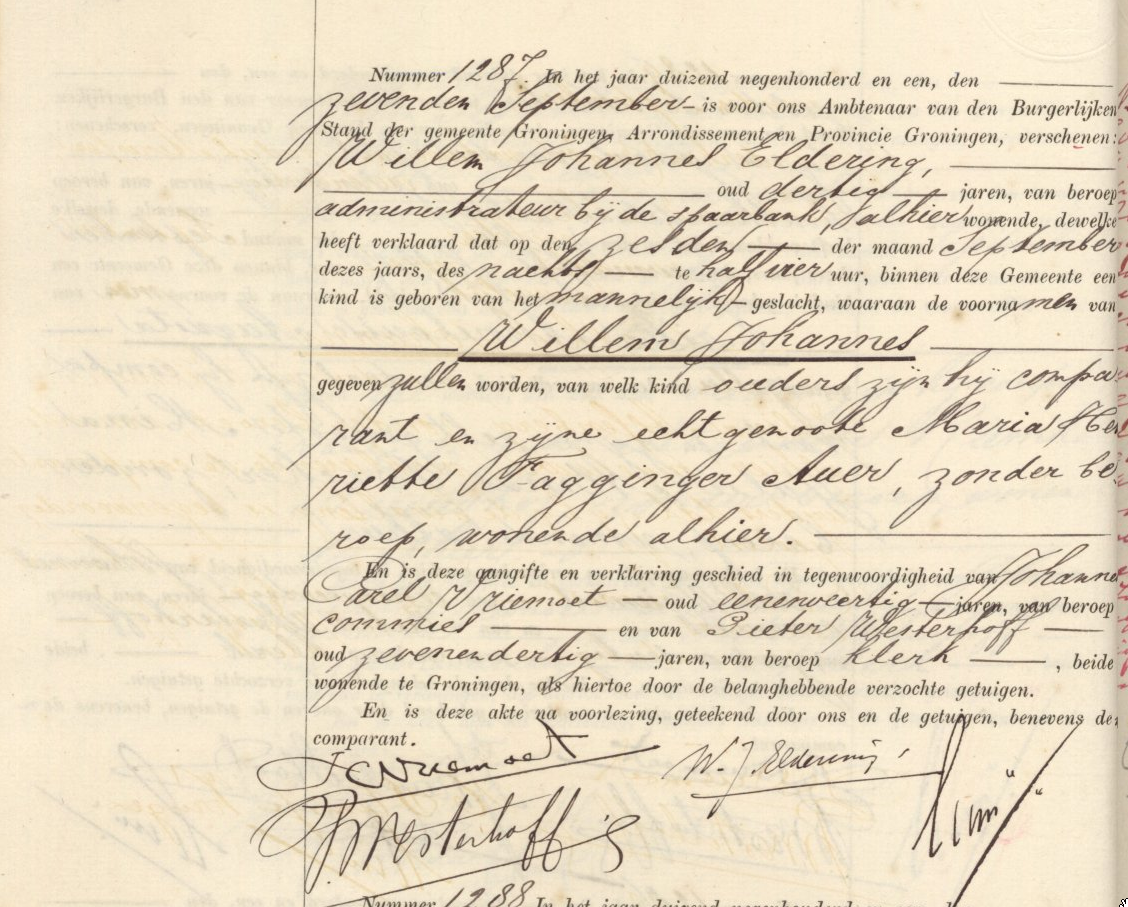 Nummer 1287. In het jaar duizend negenhonderd en een, den
zevenden September is voor ons Ambtenaar van den Burgerlijken
Stand der gemeente Groningen, Arrondissement en Provincie Groningen, verschenen:
Willem Johannes Eldering,
oud dertig jaren, van beroep
administrateur bij de spaarbank, alhier wonende, dewelke
heeft verklaard dat op den zesden der maand September
dezes jaars, des nachts te half vier uur, binnen deze Gemeente een
kind is geboren van het mannelijk geslacht, waaraan de voornamen van
Willem Johannes
gegeven zullen worden, van welk kind ouders zijn hij compa
rant en zijne echtgenoote Maria Hen
riette Fagginger Auer, zonder be
roep, wonende alhier.
En is deze aangifte en verklaring geschied in tegenwoordigheid van Johannes
Carel Vriemoet oud eenenveertig jaren, van beroep
commies en van Pieter Westerhoff
oud zevenendertig jaren, van beroep klerk, beide
wonende te Groningen, als hiertoe door de belanghebbende verzochte getuigen.
En is deze akte na voorlezing, geteekend door ons en de getuigen, benevens den
comparant.
JCVriemoet W. J. Eldering
P. Westerhoff
Nummer 1288 In het jaar duizend negenhonderd en een, d